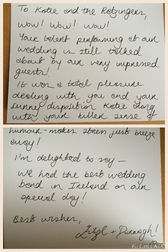 To Katie and the Ratzingers,
Wow! Wow! Wow!
Your talent performing at our
wedding is still talked
about by our very impressed
guests!
It was a total pleasure
dealing with you and your
sunny disposition Katie along
with your killer sense of
humour - makes stress just breeze
away!
I'm delighted to say -
we had the best wedding
band in Ireland on our
special day!
Best wishes,
& Darragh